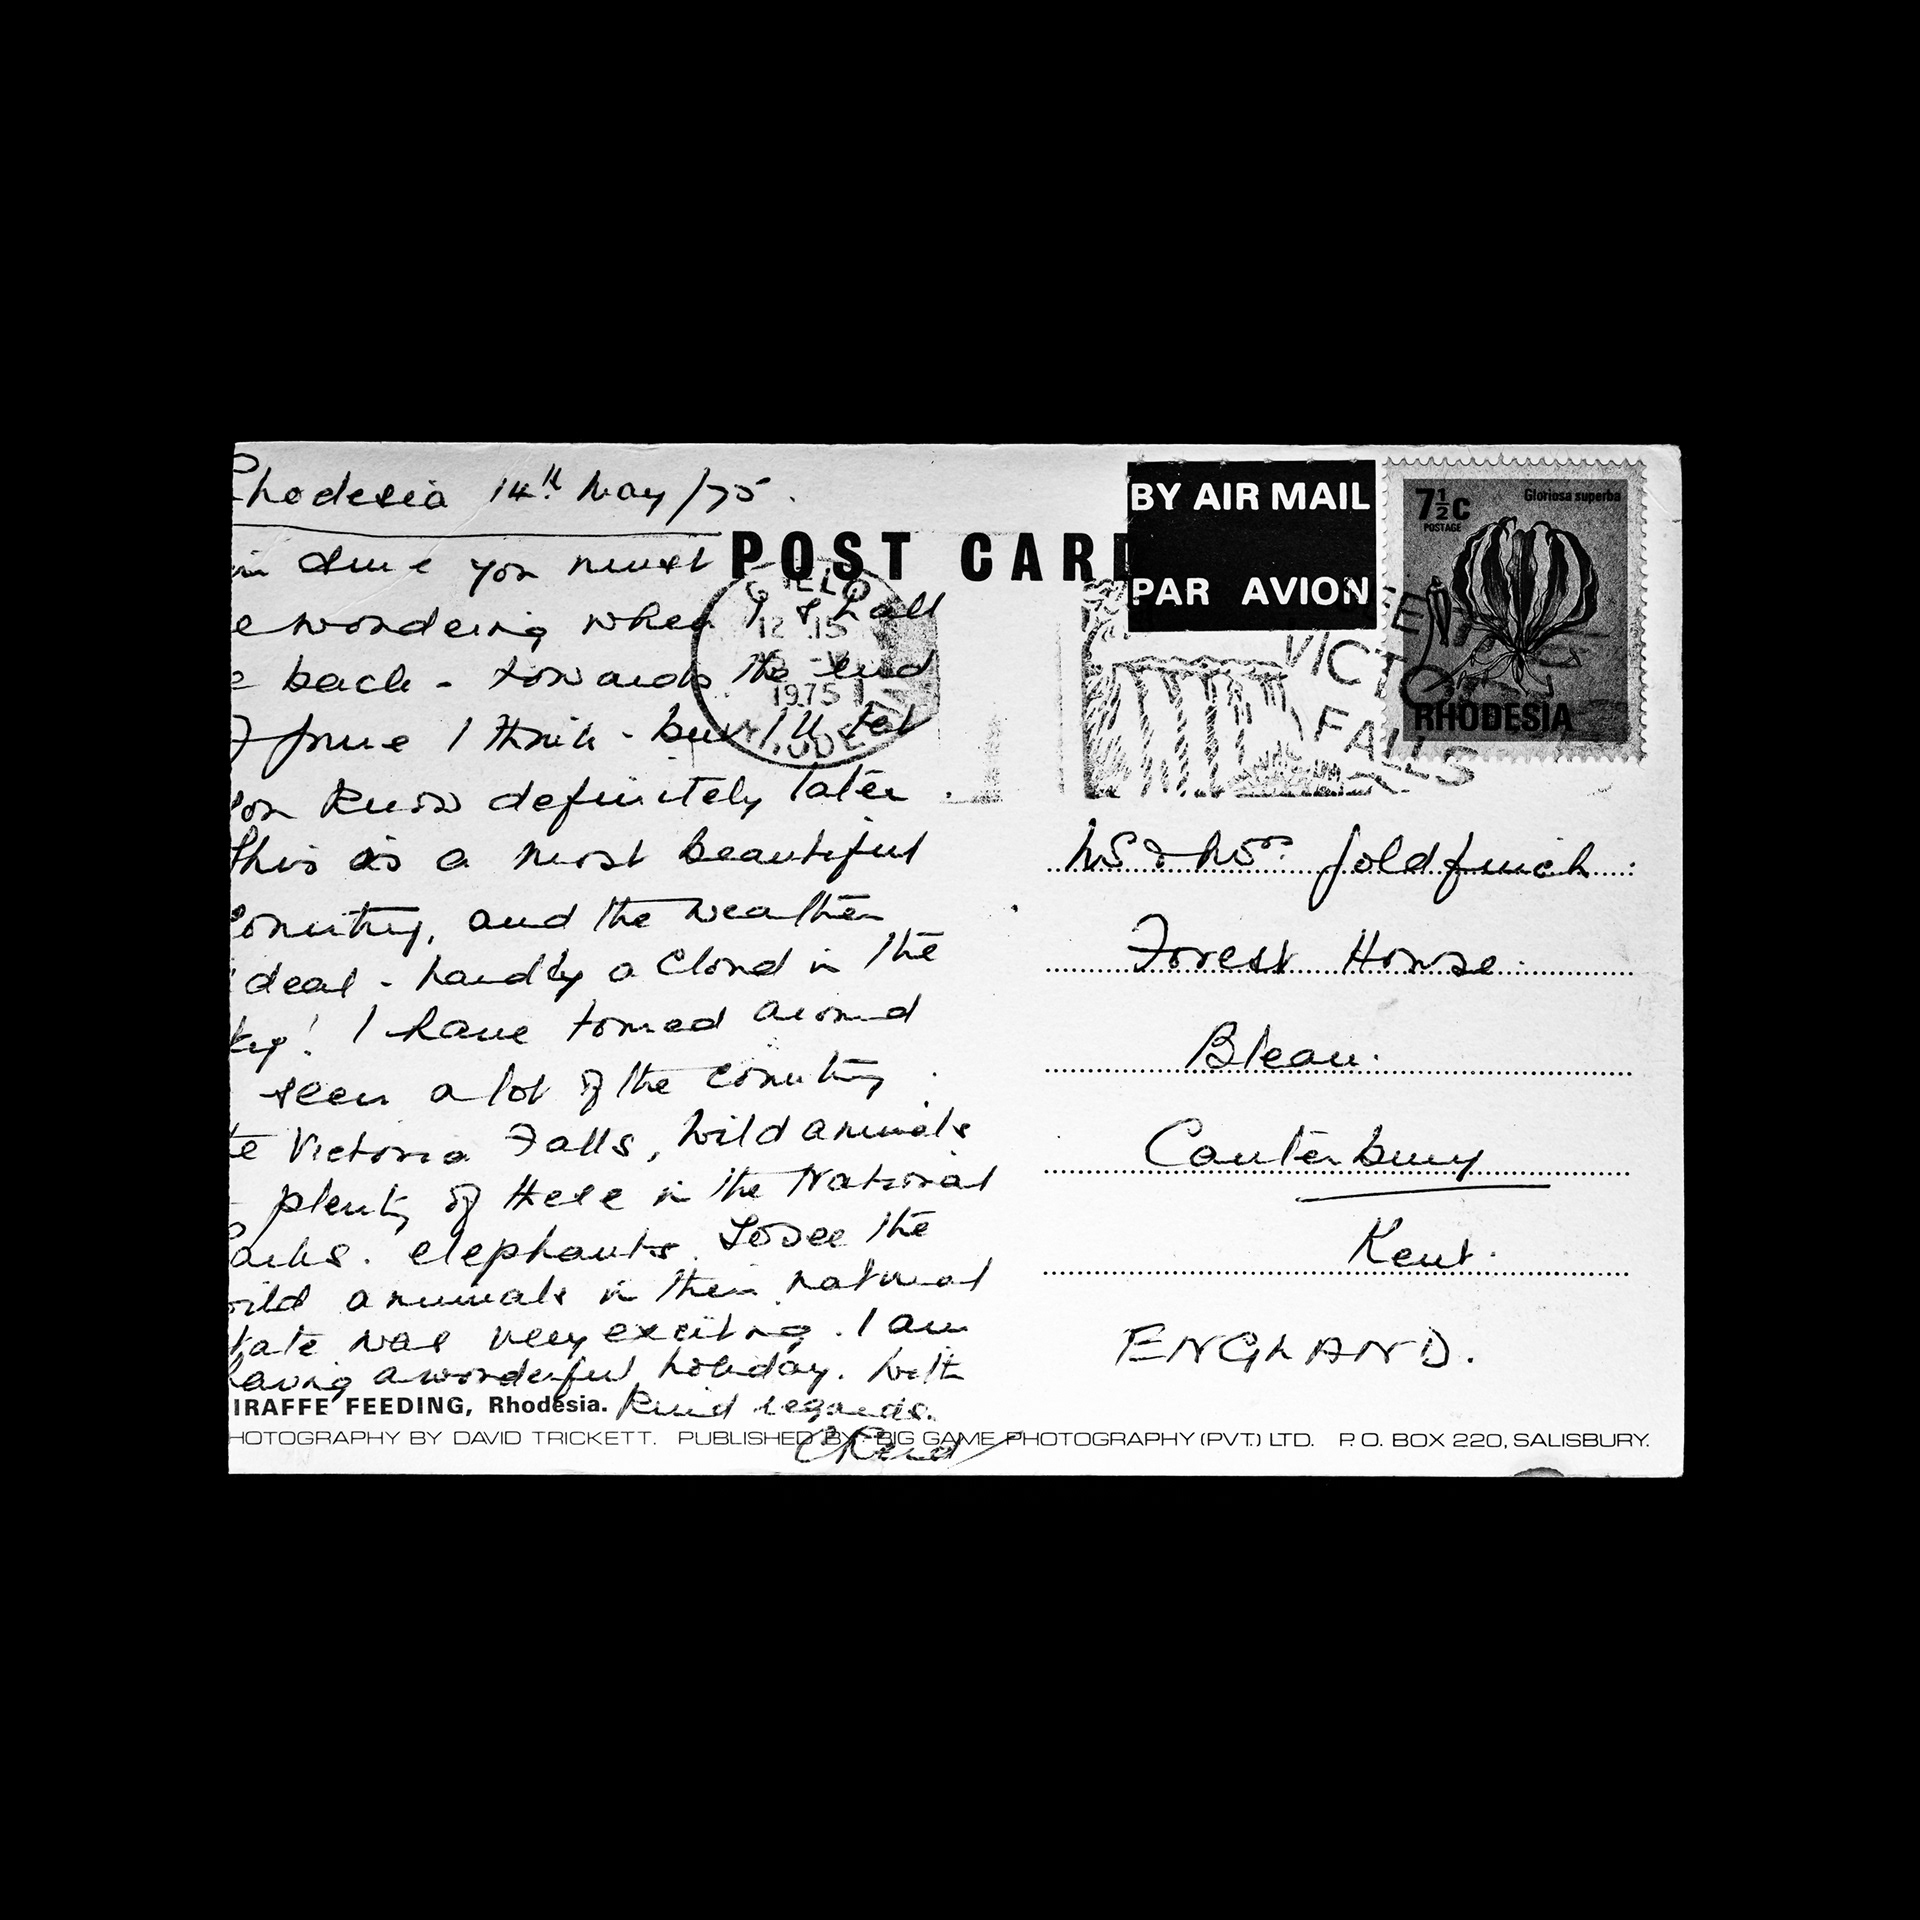 Rhodesia 14th May/75.
in sure you must
e wondering when I shall
e back - towards the end
of June I think - but I'll let
you know definitely later.
This is a most beautiful
Country, and the weather
ideal - hardly a cloud in the
sky! I have toured around
seen a lot of the country
te Victoria Falls, wild animals
- plenty of these in the National
Parks. elephants. To see the
wild animals in their natural
state was very exciting. I am
having a wonderful holiday. With
Kind regards.
POST CARD
BY AIR MAIL
PAR AVION
7½C
POSTAGE
Gloriosa superba
RHODESIA
12 15
1975
VICTO
FALLS
Mr & Mrs: Goldfinch:
Forest House.
Blean.
Canterbury
Kent.
ENGLAND.
IRAFFE FEEDING, Rhodesia.
HOTOGRAPHY BY DAVID TRICKETT. PUBLISHED BY: BIG GAME PHOTOGRAPHY (PVT.) LTD. P.O. BOX 220, SALISBURY.